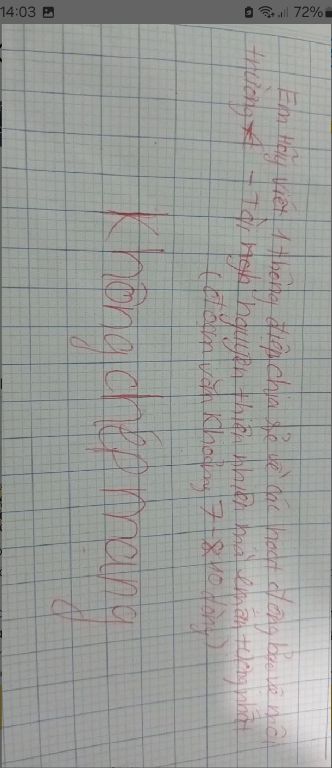 14:03
72%
Em hãy viết 1 thông điệp chia sẻ về các hoạt động bảo vệ môi
trường - Tài nguyên thiên nhiên mà em ấn tượng nhất
(đoạn văn khoảng 7-8 10 dòng)
Không chép mạng